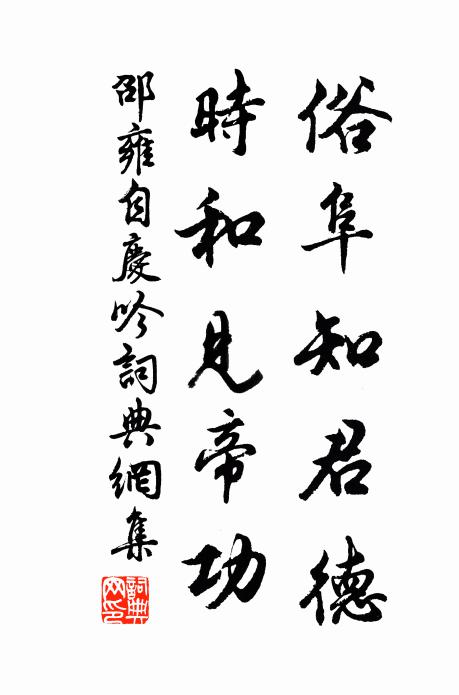 俗阜知君德
時和見帝功
邵雍自慶吟詞典網集
詞典網印